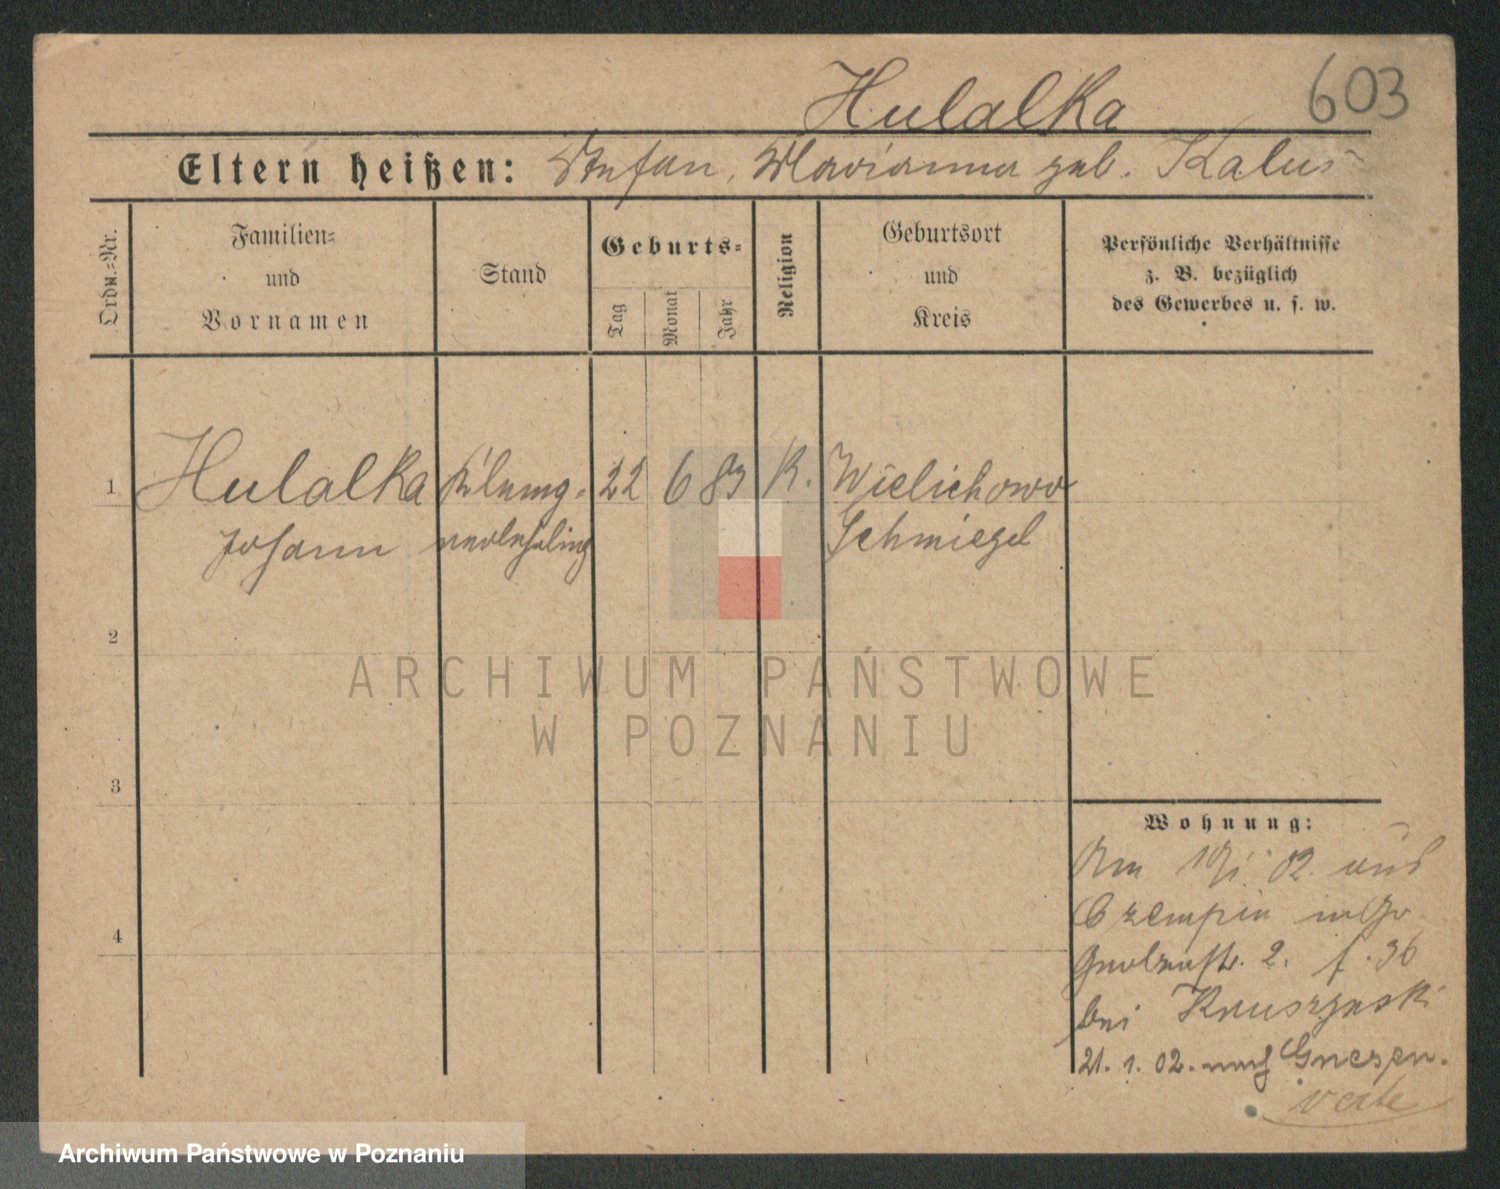 Hulalka
603
Eltern heißen: Stefan, Marianna geb. Kalus
Ordn.-Nr.
Familien-
und
Vornamen
Stand
Geburts-
Tag
Monat
Jahr
Religion
Geburtsort
und
Kreis
Persönliche Verhältnisse
z. B. bezüglich
des Gewerbes u. s. w.
1
Hulalka
Johann
22
6
83
K.
Wielichowo
Schmiegel
2
3
4
Wohnung:
Am 02. aus
Czempin
2. 36
bei
21. 1. 02. nach Gnesen.
ARCHIWUM PAŃSTWOWE
W POZNANIU
Archiwum Państwowe w Poznaniu